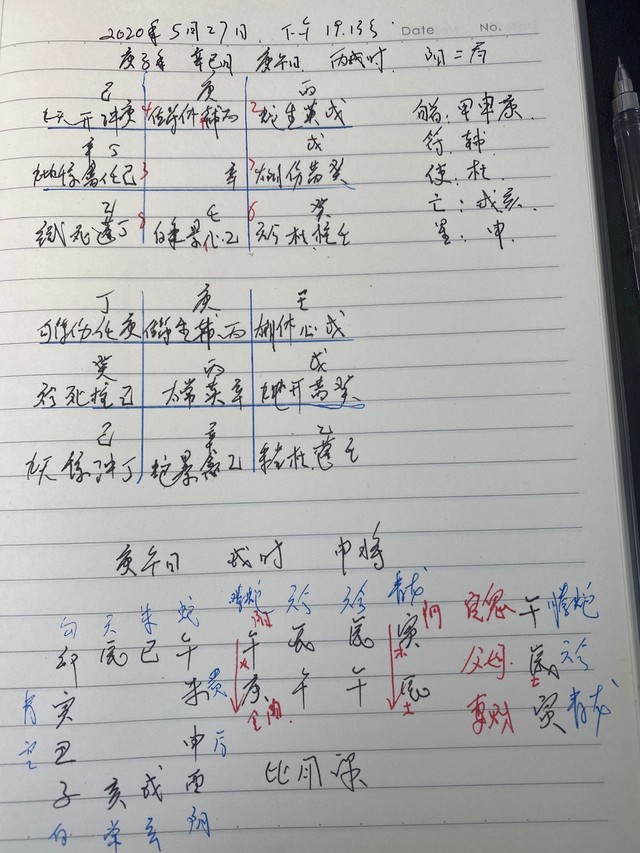 2020年5月27日. 下午 19.13分 Date No.
庚子年 辛巳月 庚午日 丙戌时 阴二局
己 庚 丙
九天开冲庚 4 值符休辅丙 2 蛇生英戊 旬首:甲申庚.
辛丁 戊 符.辅
九地惊芮任己 3 辛 7 太阴伤禽癸 使:杜.
乙 壬 癸 亡:戌亥.
玄武死蓬丁 8 白虎景心乙 6 六合杜柱壬 星:申.
丁 庚 壬
伤任庚 值符生辅丙 阴休心戊
癸 丙 戊
六合死柱己 太常英辛 九地开禽癸
己 辛 乙
九天惊冲丁 蛇景芮乙 杜蓬壬
庚午日 戌时 申将
勾 六 朱 蛇 螣蛇 六合 六合 青龙 官鬼 午 螣蛇
卯 辰 巳 午 午 辰 辰 寅 父母 辰 六合
青 寅 未 贵 庚 午 午 辰 妻财 寅 青龙
空 丑 申 后 火 金 木 土
子 亥 戌 酉 比用课
白 常 玄 阴